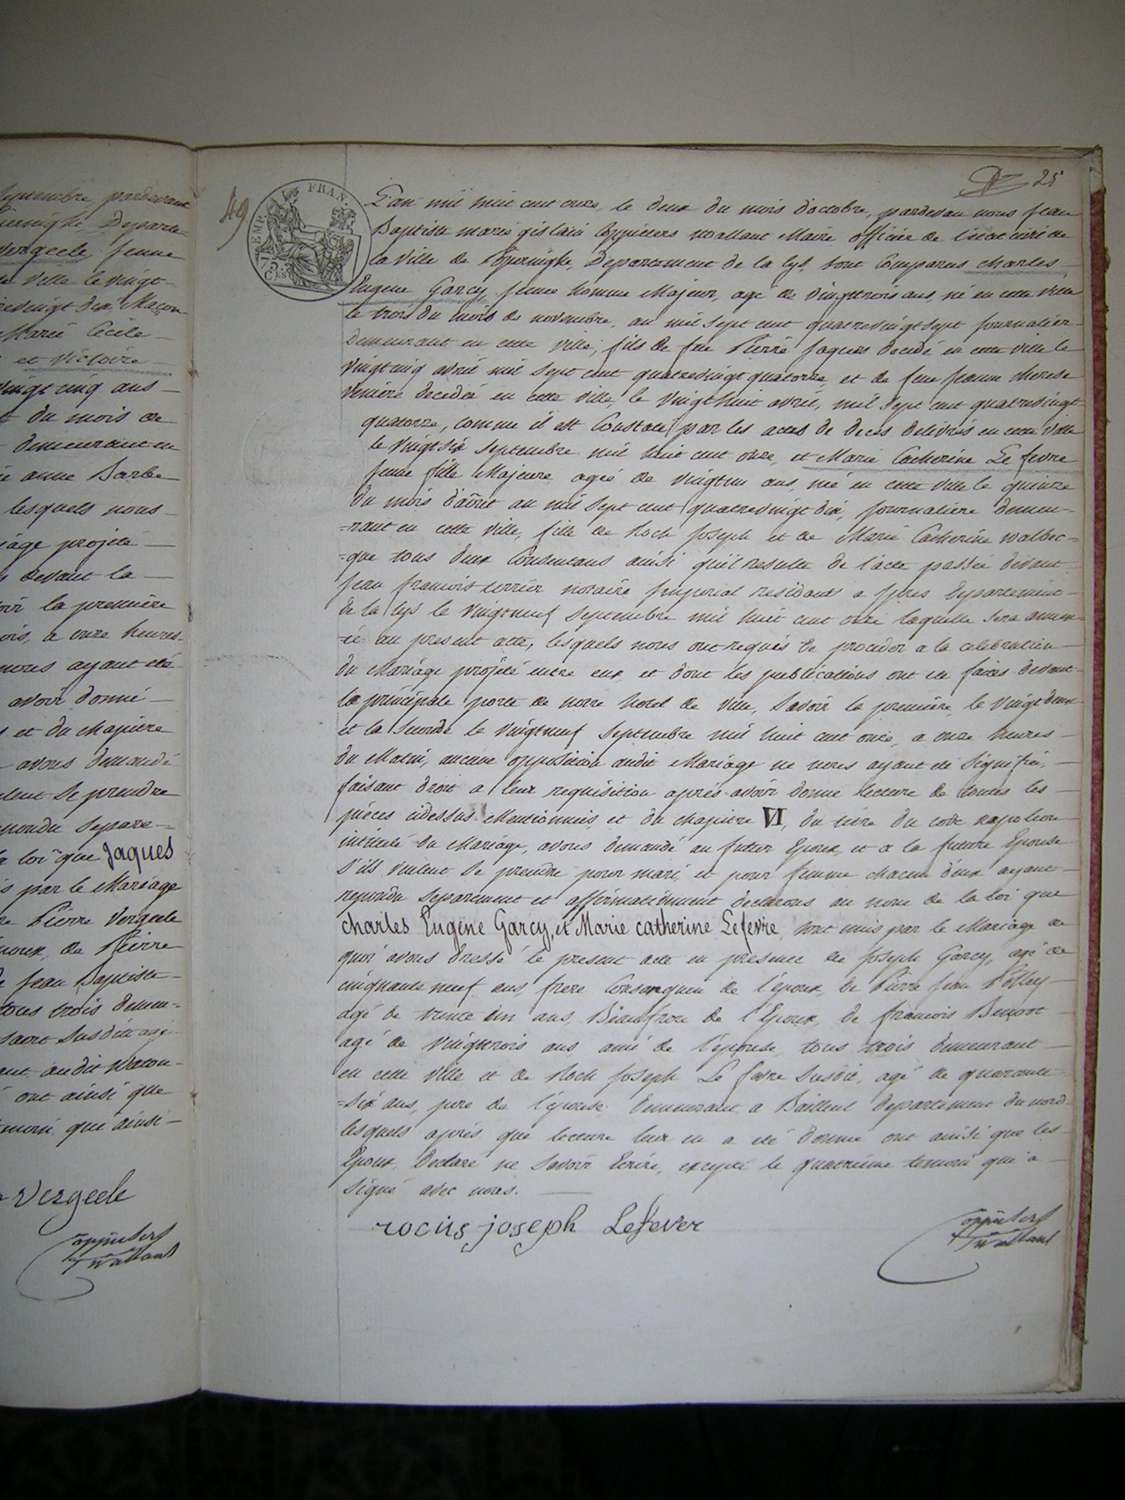 Septembre pardevant
Departe-
Vergeele, jeune
Ville le vingt-
Marie Cécile
et Victoire
vingt cinq ans
du mois de
demeurant en
anne Barbe
lesquels nous
mariage projeté
devant la
la première
a onze heures
nous ayant été
avoir donné
et du chapitre
avons demandé
veulent se prendre
repondu separe-
la loi que Jaques
par le Mariage
Pierre Vergeele
epoux, de Pierre
de Jean Baptiste
tous trois demeu-
susdit agé
audit Waton-
ont ainsi que
temoin que ainsi
Vergeele
Coppieters
Wallant
25
49
EMP. FRAN.
L'an mil huit cent onze, le deux du mois d'octobre, pardevan nous Jean
Baptiste marie gislain Coppieters Wallant Maire officier de l'état civil de
la ville de Poperinghe, Departement de la Lys, sont Comparus Charles
Eugene Garcy jeune homme Majeur, agé de vingttrois ans, né en cette ville
le trois du mois de novembre, an mil sept cent quatrevingt sept journalier
demeurant en cette ville, fils de feu Pierre Jaques decédé en cette ville le
vingtcinq avril mil sept cent quatrevingt quatorze et de feue Jeanne therese
decédée en cette ville le vingthuit avril, mil sept cent quatrevingt
quatorze, comme il est Constaté par les actes de decès delivrés en cette ville
le vingtsix septembre mil huit cent onze, et Marie Catherine Le fevre
jeune fille Majeure agée de vingtun ans, né en cette ville le quinze
du mois d'août an mil sept cent quatrevingt dix, journaliere demeu-
=rant en cette ville, fille de Roch Joseph et de Marie Catherine Walbec-
=que tous deux Consentans ainsi qu'il resulte de l'acte passée devant
Jean francois terrier notaire Imperial residans a Ypres Departement
de la Lys le vingtneuf septembre mil huit cent onze laquelle sera annex-
=ée au present acte, lesquels nous ont requis de proceder a la celebration
du Mariage projété entre eux et dont les publications ont eu faites devant
la principale porte de notre hotel de ville, Savoir la premiere, le vingt deux
et la seconde le vingtneuf septembre mil huit cent onze, a onze heures
du Matin, aucune opposition audit Mariage ne nous ayant eté signifié,
faisant droit a leur requisition après avoir donné lecture de toutes les
pièces cidessus Mentionnés et du chapitre VI, du titre du code napoleon
intitulé du Mariage, avons demandé au futur Epoux, et a la future Epouse
s'ils veulent se prendre pour mari, et pour femme chacun d'eux ayant
repondu separement et affirmativement declarons au nom de la loi que
charles Eugène Garcy, et Marie catherine Lefevre sont unis par le Mariage de
quoi avons dressé le present acte en presence de Joseph Garcy, agé de
cinquante neuf ans, frere Consanguin de l'époux, de Pierre Jean
agé de trente un ans Beaufrere de l'Epoux, de francois
agé de vingttrois ans ami de l'épouse, tous trois demeurant
en cette ville et de Roch Joseph Le fevre susdit, agé de quarante
=six ans, pere de l'épouse demeurant a Bailleul departement du nord
lesquels après que lecture leur en a été donnée ont ainsi que les
Epoux declaré ne savoir Ecrire, excepté le quatrième temoin qui a
signé avec nous.
rocus joseph Lefever
Coppieters
Wallant